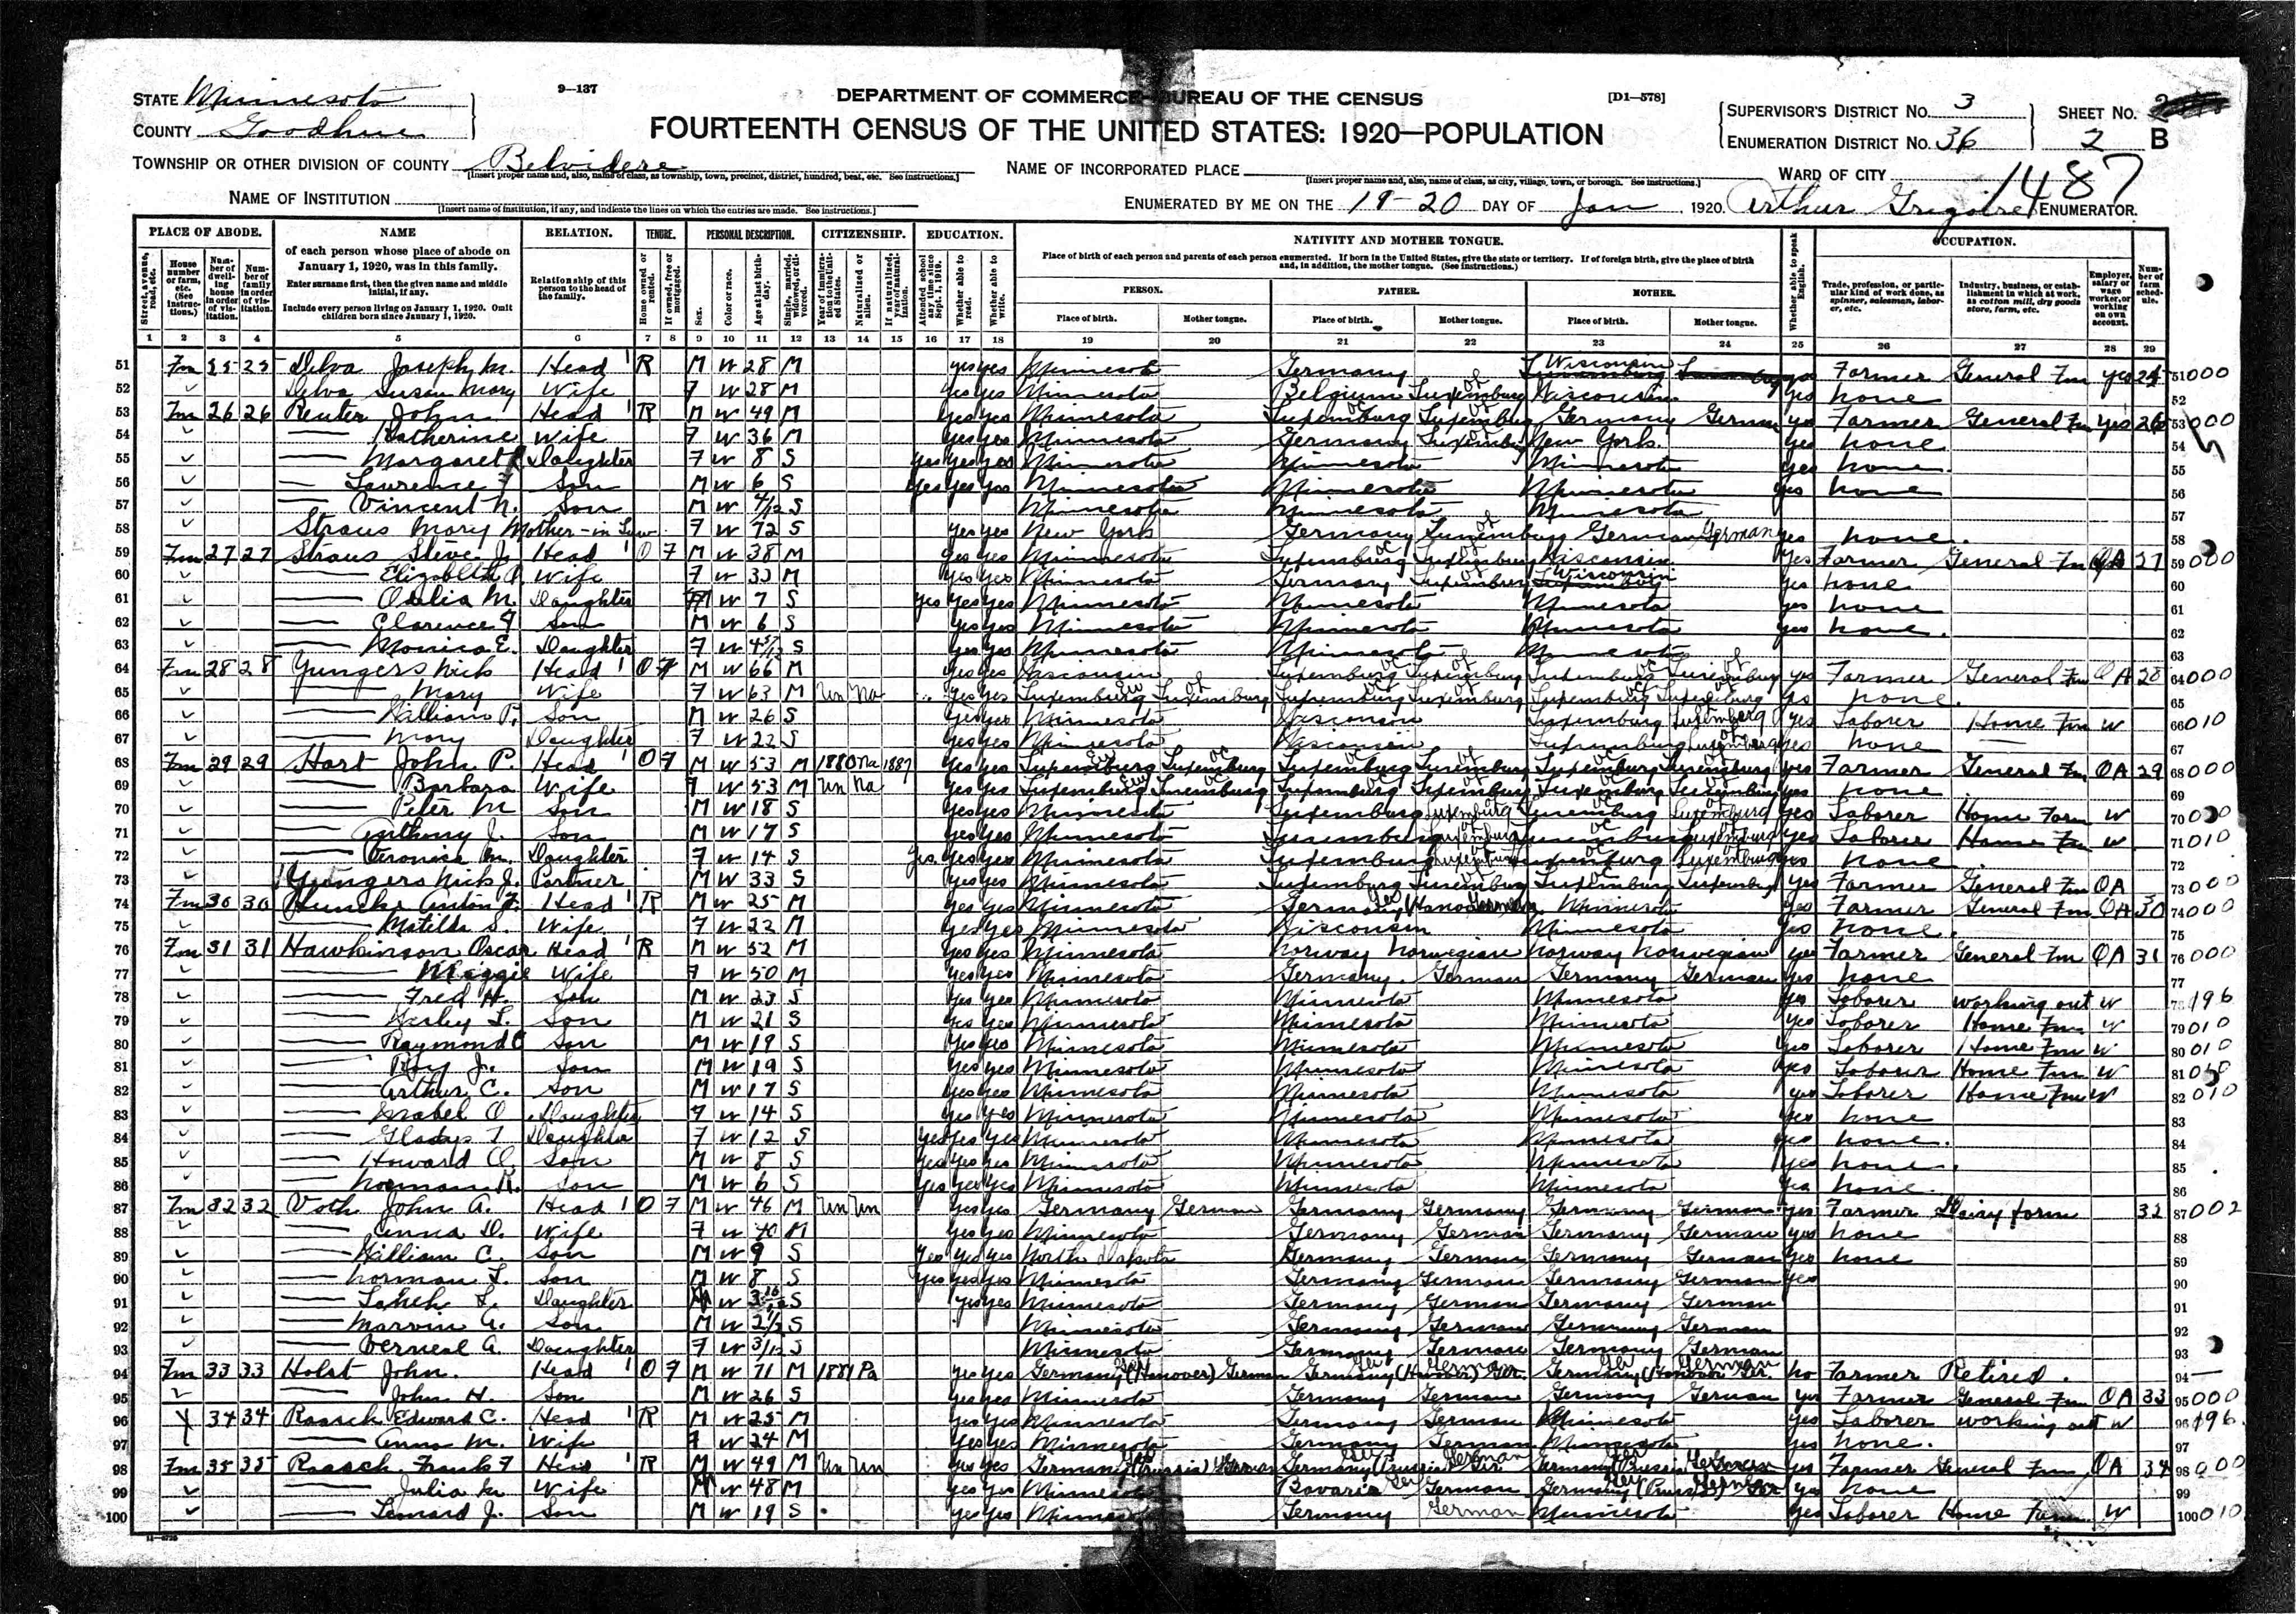 9—137
DEPARTMENT OF COMMERCE—BUREAU OF THE CENSUS
[D1—578]
FOURTEENTH CENSUS OF THE UNITED STATES: 1920—POPULATION
STATE Minnesota
COUNTY Goodhue
SUPERVISOR'S DISTRICT No. 3
SHEET No. 2 B
ENUMERATION DISTRICT No. 36
TOWNSHIP OR OTHER DIVISION OF COUNTY Belvidere
[Insert proper name and, also, name of class, as township, town, precinct, district, hundred, beat, etc. See instructions.]
NAME OF INCORPORATED PLACE
[Insert proper name and, also, name of class, as city, village, town, or borough. See instructions.]
WARD OF CITY
1487
NAME OF INSTITUTION
[Insert name of institution, if any, and indicate the lines on which the entries are made. See instructions.]
ENUMERATED BY ME ON THE 19-20 DAY OF Jan, 1920. Arthur ENUMERATOR.
PLACE OF ABODE. NAME RELATION. TENURE. PERSONAL DESCRIPTION. CITIZENSHIP. EDUCATION. NATIVITY AND MOTHER TONGUE. OCCUPATION.
of each person whose place of abode on January 1, 1920, was in this family.
Enter surname first, then the given name and middle initial, if any.
Include every person living on January 1, 1920. Omit children born since January 1, 1920.
Relationship of this person to the head of the family.
Place of birth of each person and parents of each person enumerated. If born in the United States, give the state or territory. If of foreign birth, give the place of birth and, in addition, the mother tongue. (See instructions.)
PERSON. FATHER. MOTHER.
Place of birth. Mother tongue. Place of birth. Mother tongue. Place of birth. Mother tongue.
Whether able to speak English.
Trade, profession, or particular kind of work done, as spinner, salesman, laborer, etc.
Industry, business, or establishment in which at work, as cotton mill, dry goods store, farm, etc.
Employer, salary or wage worker, or working on own account.
Number of farm schedule.
1 2 3 4 5 6 7 8 9 10 11 12 13 14 15 16 17 18 19 20 21 22 23 24 25 26 27 28 29
51 Fm 25 25 Delva Joseph M. Head 1 R M W 28 M yes yes Minnesota Germany Wisconsin yes Farmer General Fm 000
52 Delva Susan Mary Wife F W 28 M yes yes Minnesota Belgium Luxemburg Wisconsin yes none
53 Fm 26 26 Reuter John Head 1 R M W 49 M yes yes Minnesota Luxemburg Luxemburg Germany German yes Farmer General Fm 26 000
54 Katherine Wife F W 36 M yes yes Minnesota Germany Luxemburg New York yes none
55 Margaret Daughter F W 8 S yes yes yes Minnesota Minnesota Minnesota yes none
56 Lawrence Son M W 6 S yes yes yes Minnesota Minnesota Minnesota yes none
57 Vincent N. Son M W 4/12 S Minnesota Minnesota Minnesota
58 Straus Mary Mother-in Law F W 72 S yes yes New York Germany Luxemburg German German yes none
59 Fm 27 27 Straus Steve J. Head 1 O F M W 38 M yes yes Minnesota Luxemburg Luxemburg Wisconsin yes Farmer General Fm OA 27 000
60 Elizabeth Wife F W M yes yes Minnesota Germany Luxemburg Wisconsin yes none
61 M. Daughter W 7 S yes yes yes Minnesota Minnesota Minnesota yes none
62 Clarence Son M W 6 S yes yes Minnesota Minnesota Minnesota yes none
63 Monica E. Daughter F W S yes yes Minnesota Minnesota Minnesota
64 Fm 28 28 Yungers Nick Head 1 O F M W 66 M yes yes Wisconsin Luxemburg Luxemburg Luxemburg Luxemburg yes Farmer General Fm OA 28 000
65 Mary Wife F W 63 M Un Na yes yes Luxemburg Luxemburg Luxemburg Luxemburg Luxemburg Luxemburg yes none
66 William P. Son M W 26 S yes yes Minnesota Wisconsin Luxemburg Luxemburg yes Laborer Home Fm W 010
67 Mary Daughter F W 22 S yes yes Minnesota Wisconsin Luxemburg Luxemburg yes none
68 Fm 29 29 Hart John P. Head 1 O F M W 53 M 1880 Na 1887 yes yes Luxemburg Luxemburg Luxemburg Luxemburg Luxemburg Luxemburg yes Farmer General Fm OA 29 000
69 Barbara Wife F W 53 M Un Na yes yes Luxemburg Luxemburg Luxemburg Luxemburg Luxemburg Luxemburg yes none
70 Peter M Son M W 18 S yes yes Minnesota Luxemburg Luxemburg Luxemburg Luxemburg yes Laborer Home Farm W
71 Anthony J. Son M W 17 S yes yes Minnesota Luxemburg Luxemburg Luxemburg Luxemburg yes Laborer Home Fm W 010
72 Veronica M. Daughter F W 14 S yes yes yes Minnesota Luxemburg Luxemburg Luxemburg Luxemburg yes none
73 Yungers Nick J. Partner M W 33 S yes yes Minnesota Luxemburg Luxemburg Luxemburg Luxemburg yes Farmer General Fm OA 000
74 Fm 30 30 Anton F. Head 1 R M W 25 M yes yes Minnesota Germany Minnesota yes Farmer General Fm OA 30 000
75 Matilda S. Wife F W 22 M yes yes Minnesota Wisconsin Minnesota yes none
76 Fm 31 31 Hawkinson Oscar Head 1 R M W 52 M yes yes Minnesota Norway Norwegian Norway Norwegian yes Farmer General Fm OA 31 000
77 Maggie Wife F W 50 M yes yes Minnesota Germany German Germany German yes none
78 Fred H. Son M W 23 S yes yes Minnesota Minnesota Minnesota yes Laborer working out W 196
79 Wesley L. Son M W 21 S yes yes Minnesota Minnesota Minnesota yes Laborer Home Fm W 010
80 Raymond Son M W 19 S yes yes Minnesota Minnesota Minnesota yes Laborer Home Fm W 010
81 Roy J. Son M W 19 S yes yes Minnesota Minnesota Minnesota yes Laborer Home Fm W
82 Arthur C. Son M W 17 S yes yes Minnesota Minnesota Minnesota yes Laborer Home Fm W 010
83 Mabel O Daughter F W 14 S yes yes Minnesota Minnesota Minnesota yes none
84 Gladys Daughter F W 12 S yes yes yes Minnesota Minnesota Minnesota yes none
85 Howard O. Son M W 8 S yes yes yes Minnesota Minnesota Minnesota yes none
86 Norman R. Son M W 6 S yes yes yes Minnesota Minnesota Minnesota yes none
87 Fm 32 32 Voth John A. Head 1 O F M W 46 M Un Un yes yes Germany German Germany Germany Germany German yes Farmer Dairy farm 32 002
88 Anna D. Wife F W 40 M yes yes Minnesota Germany German Germany German yes none
89 William C. Son M W 9 S yes yes yes North Dakota Germany German Germany German yes none
90 Norman L. Son M W 8 S yes yes yes Minnesota Germany German Germany German yes
91 L. Daughter W S yes yes Minnesota Germany German Germany German
92 Marvin A. Son M W S Minnesota Germany German Germany German
93 Verneal A Daughter F W 3/12 S Minnesota Germany German Germany German
94 Fm 33 33 Holst John. Head 1 O F M W 71 M 1881 Pa yes yes Germany (Hanover) German Germany (Hanover) Ger. Germany (Hanover) Ger. no Farmer Retired.
95 John H. Son M W 26 S yes yes Minnesota Germany German Germany German yes Farmer General Fm OA 33 000
96 34 34 Raasch Edward C. Head 1 R M W 25 M yes yes Minnesota Germany German Minnesota yes Laborer working out W 196
97 Anna M. Wife F W 24 M yes yes Minnesota Germany German Minnesota yes none.
98 Fm 35 35 Raasch Frank F Head 1 R M W 49 M Un Un yes yes Germany (Prussia) German Germany (Prussia) Ger Germany (Prussia) German yes Farmer General Fm OA 34 000
99 Julia M Wife W 48 M yes yes Minnesota Bavaria German Germany (Prussia) Ger yes none
100 Leonard J. Son M W 19 S yes yes Minnesota Germany German Minnesota yes Laborer Home Farm W 010